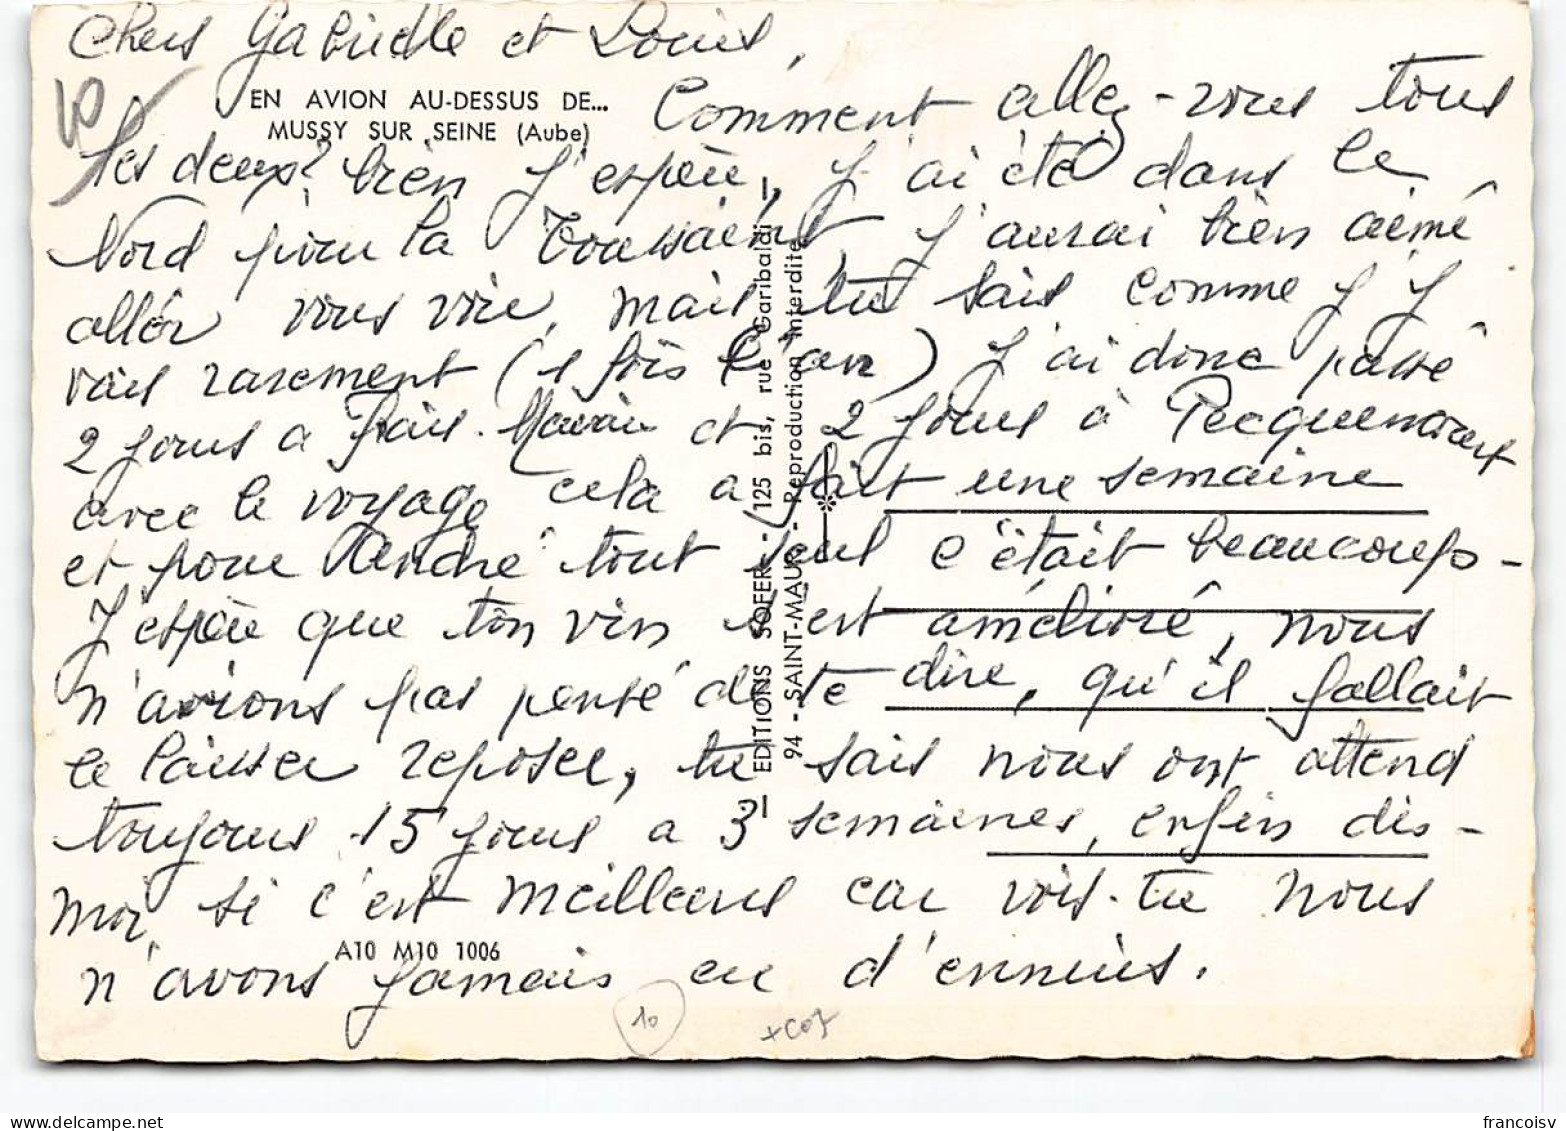 Chers Gabrielle et Louis,
EN AVION AU-DESSUS DE...
MUSSY SUR SEINE (Aube)
Comment allez-vous tous
les deux? bien j'espère, j'ai été dans le
Nord pour la Toussaint, j'aurai bien aimé
aller vous voir, mais tu sais comme j'y
vais rarement (1 fois l'an) j'ai donc passé
2 jours a Frais-Marais et 2 jours à Pecquencourt
avec le voyage cela a fait une semaine
et pour André tout seul c'était beaucoup-
J'espère que ton vin s'est amélioré, nous
n'avions pas pensé de te dire, qu'il fallait
le laisser reposer, tu sais nous ont attend
toujours 15 jours a 3 semaines, enfin dis-
moi, si c'est meilleurs car vois-tu nous
n'avons jamais eu d'ennuis.
A10 M10 1006
EDITIONS SOFER - 125 bis, rue Garibaldi
94 - SAINT-MAUR - Reproduction interdite
10
francoisv